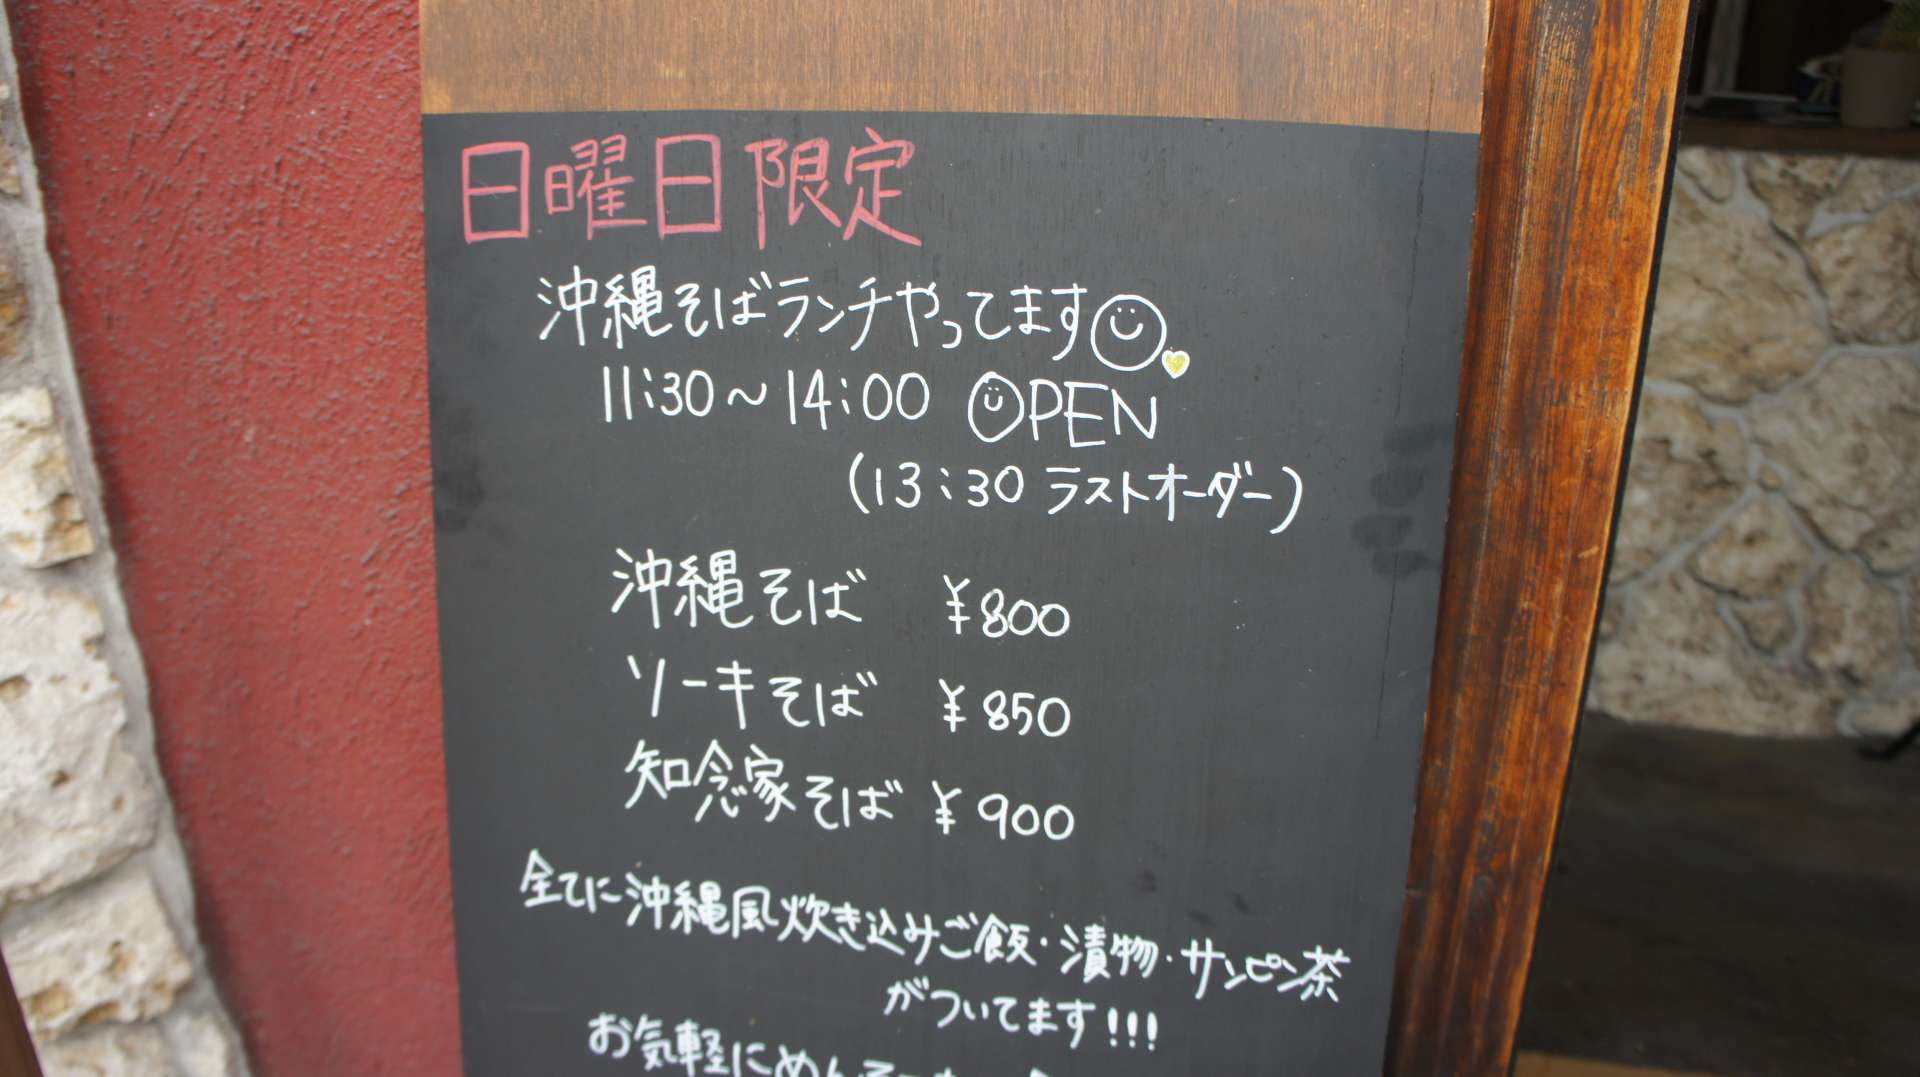 日曜日限定
沖縄そばランチやってます
11:30～14:00 OPEN
(13:30 ラストオーダー)
沖縄そば ¥800
ソーキそば ¥850
知念家そば ¥900
全てに沖縄風炊き込みご飯・漬物・サンピン茶
がついてます!!!
お気軽にめんそ